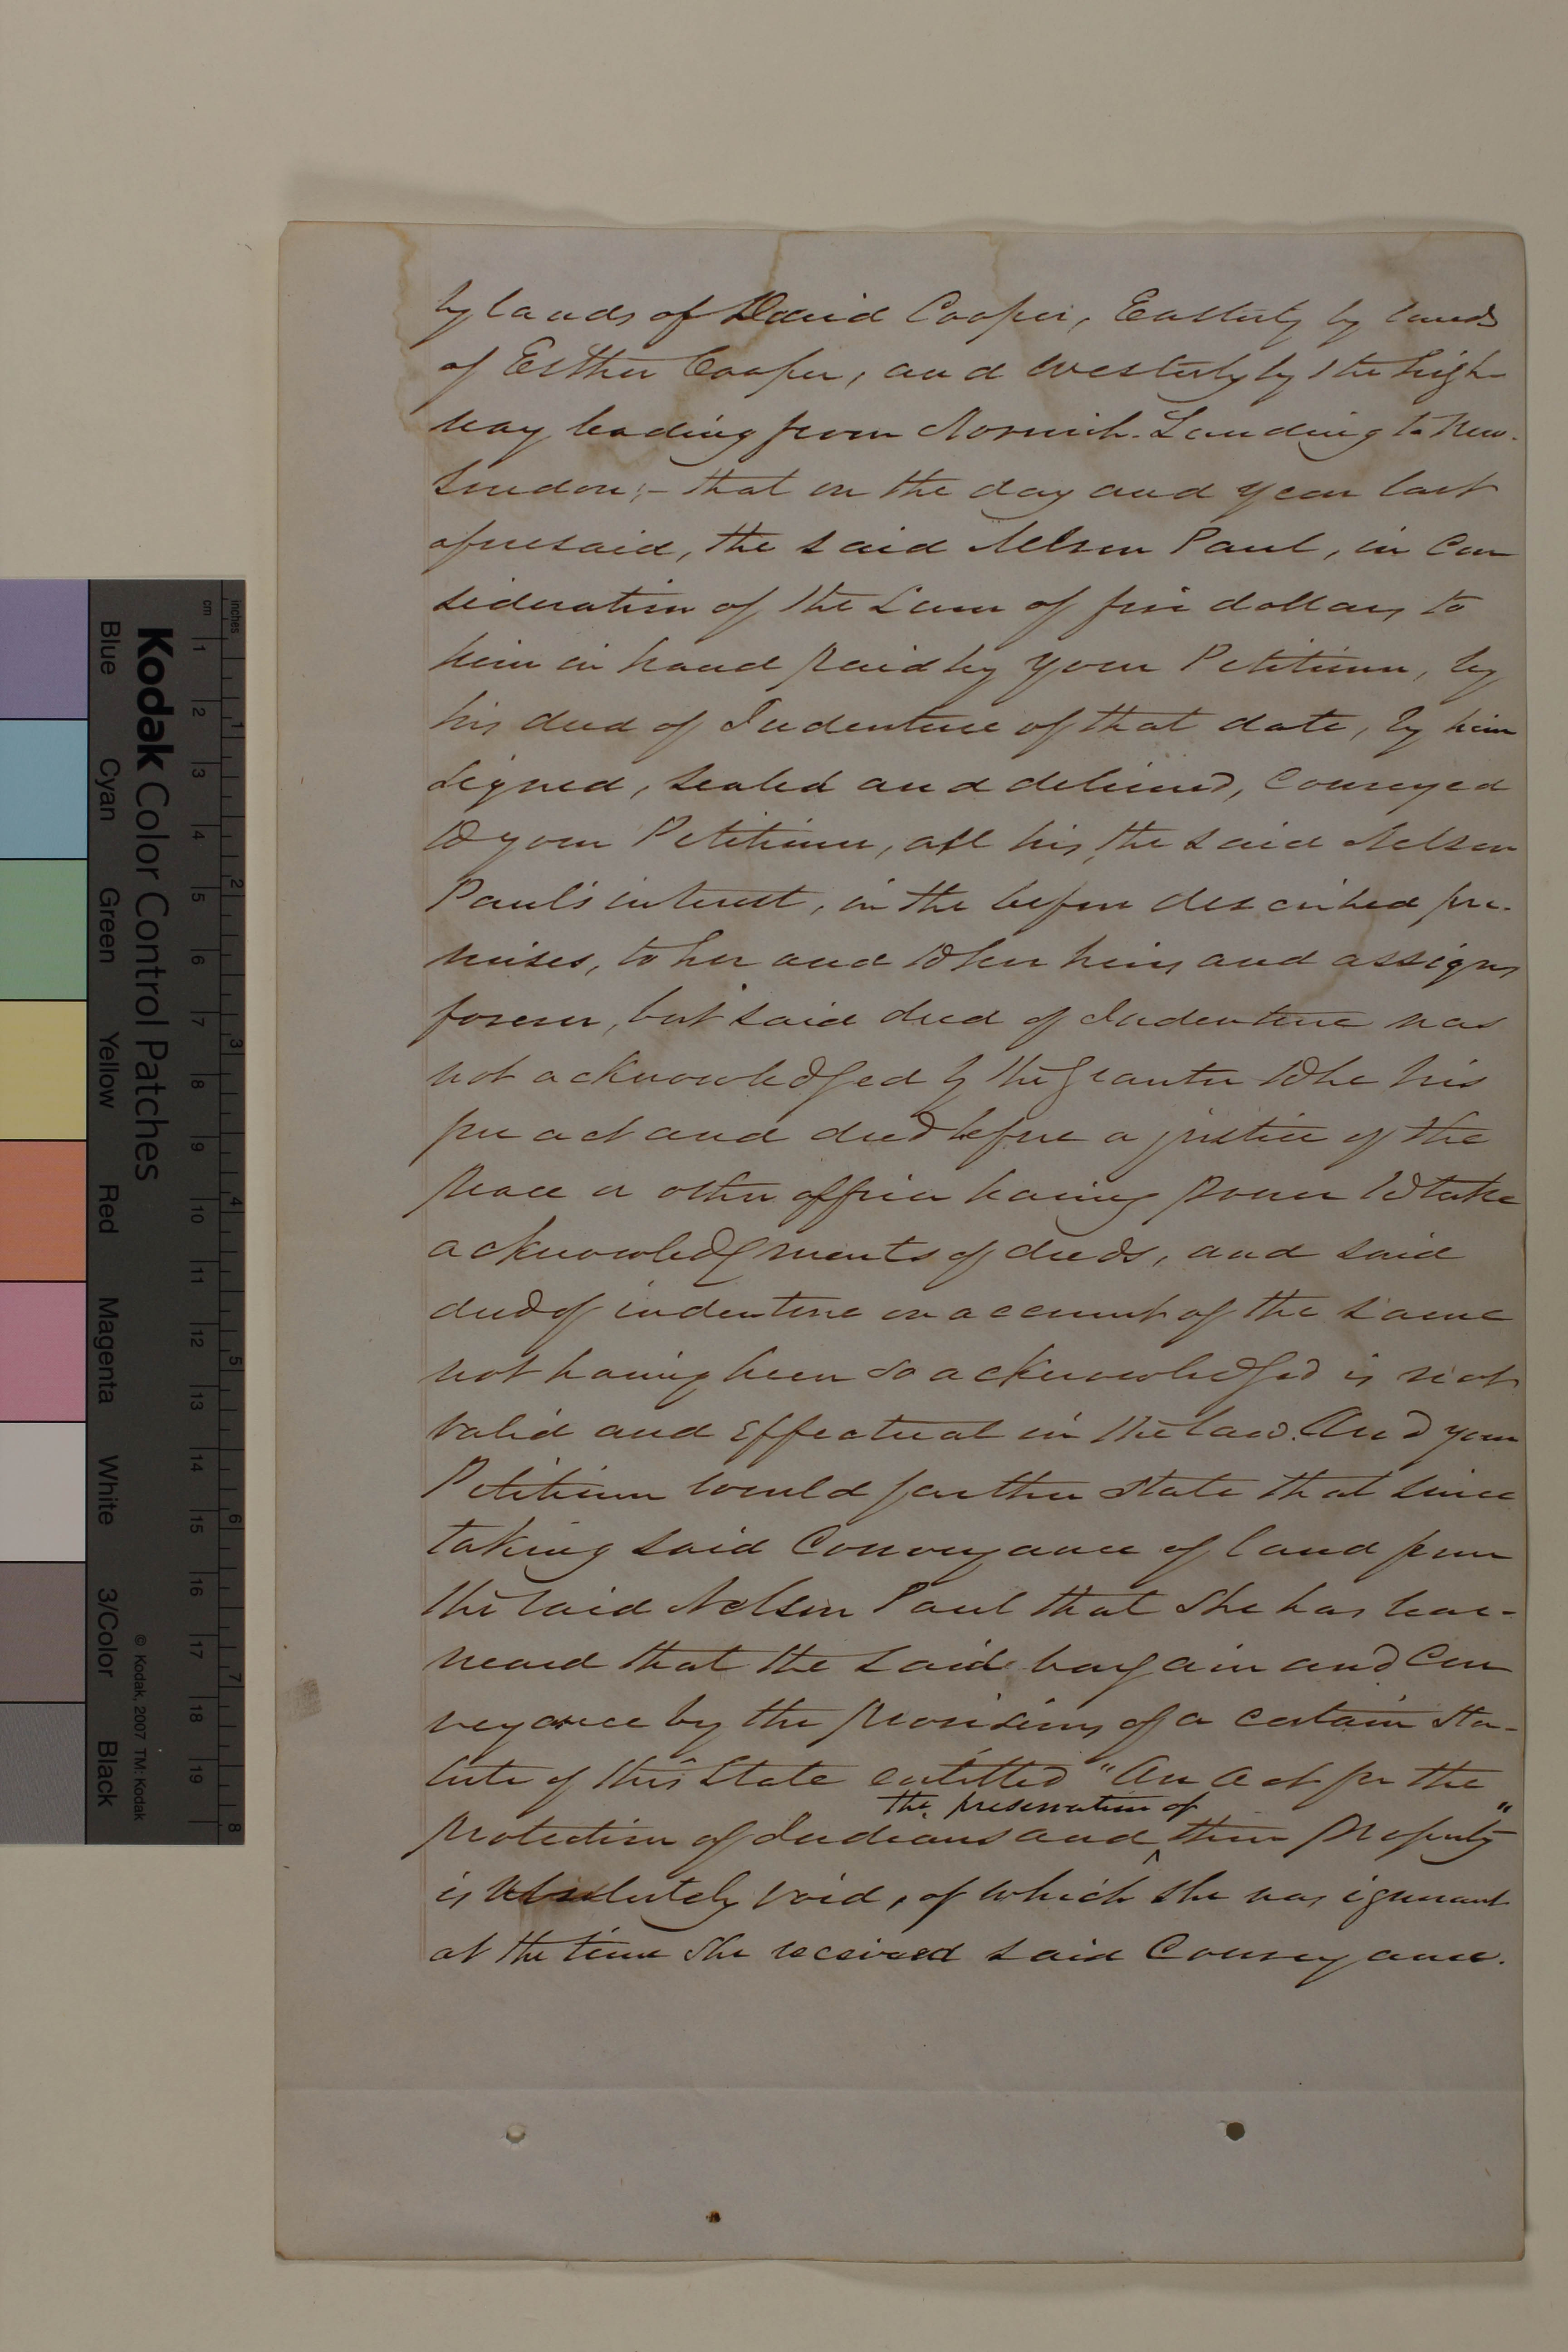 by lands of David Cooper, Easterly by lands
of Esther Cooper, and westerly by the high
way leading from Norwich-Landing to New-
London;- that on the day and year last
aforesaid, the said Nelson Paul, in Con
sideration of the Sum of five dollars to
him in hand paid by your Petitioner, by
his deed of Indenture of that date, by him
signed, sealed and delivered, Conveyed
to your Petitioner, all his, the said Nelson
Paul's interest, in the before described pre-
mises, to her and to her heirs and assigns
forever, but said deed of Indenture was
not acknowledged by the Grantor to be his
free act and deed before a justice of the
Peace or other officer having power to take
acknowledgments of deeds, and said
deed of indenture on account of the same
not having been so acknowledged is not
valid and effectual in the law. And your
Petitioner would further state that since
taking said Conveyance of land from
the said Nelson Paul that she has lear-
neard that the said bargain and Con
veyance by the provisions of a certain Sta-
tute of this State entitled "An Act for the
the preservation of
protection of Indians and ^ their property"
is absolutely void, of which she was ignorant
at the time she received said Conveyance.
Kodak Color Control Patches
Blue Cyan Green Yellow Red Magenta White 3/Color Black
© Kodak, 2007 TM: Kodak
inches 1 2 3 4 5 6 7 8
cm 1 2 3 4 5 6 7 8 9 10 11 12 13 14 15 16 17 18 19